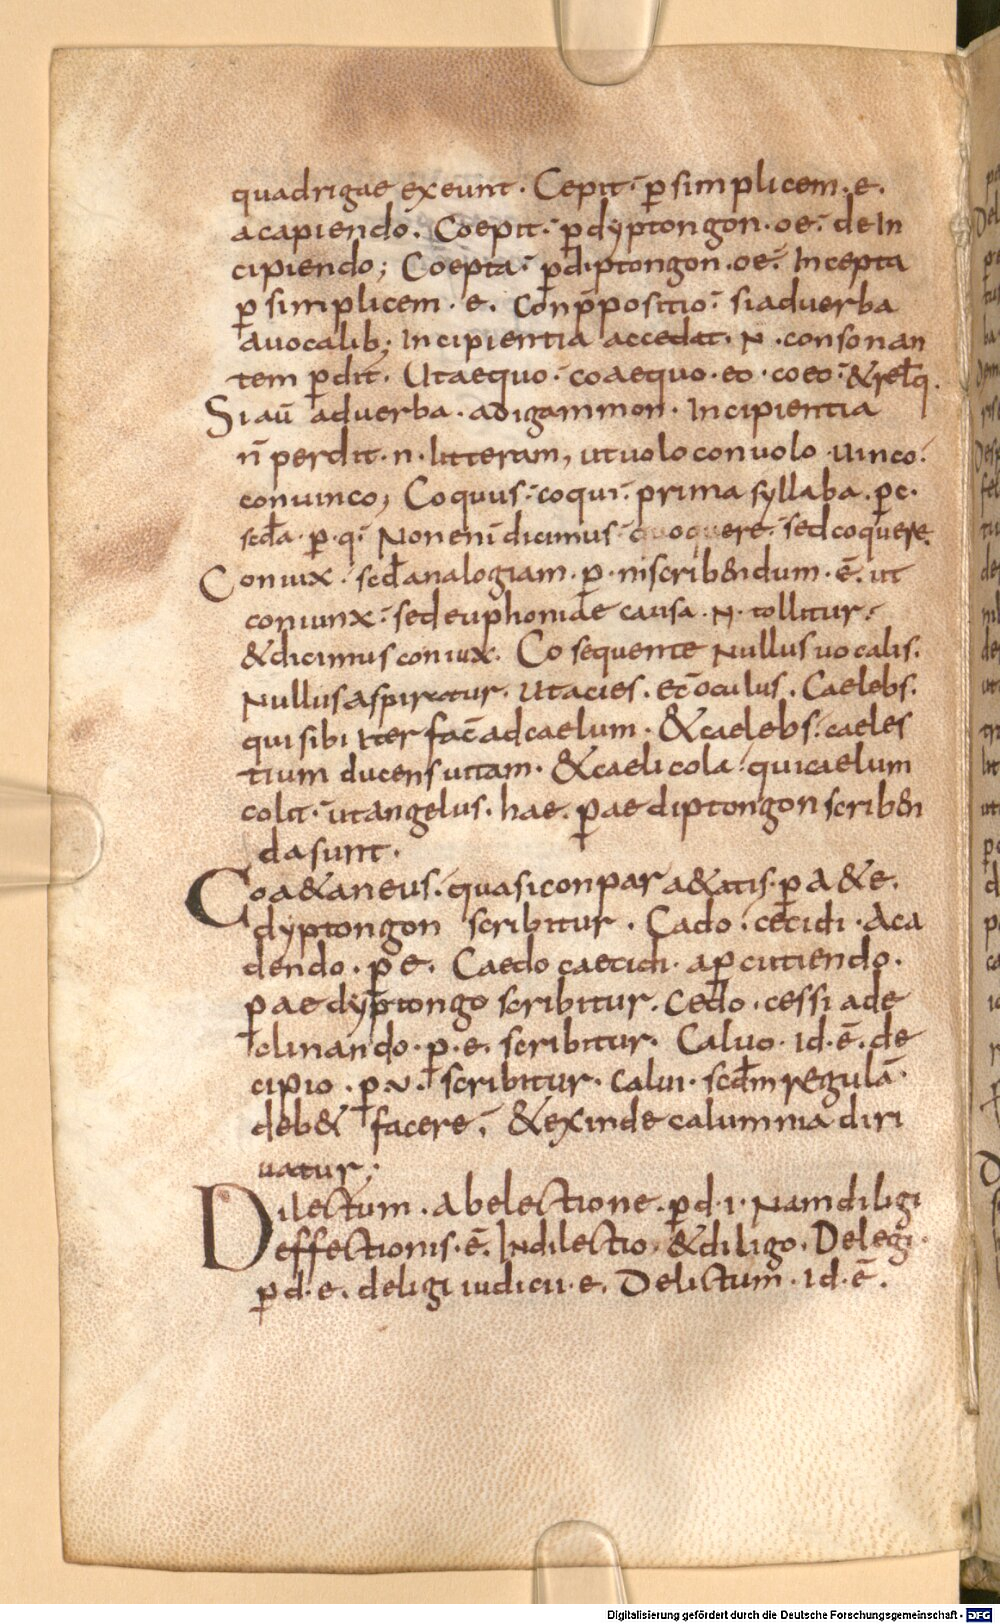 quadrigae exeunt. Cepit· ꝑ simplicem·e·
a capiendo. Coepit· ꝑ dyptongon·oe· de In
cipiendo; Coepta· ꝑ diptongon·oe· Incepta
ꝑ simplicem·e· conp̄positio· si ad uerba
a uocalib; Incipientia accedat·N·consonan
tem ꝑdit. Ut aequo· coaequo·eo·coeo· & relq̄.
Si aū ad uerba·a digammon·Incipientia
n̄ perdit·n·litteram, ut uolo conuolo·Uinco·
conuinco; Coquus·coqui·prima syllaba·ꝑ c·
scđa·ꝑ·q· Non eni dicimus·quoquere·sed coquere.
Coniux·scđ analogiam·ꝑ·n scrib&ndum·ē·ut
coniunx·sed euphoniae causa·N·tollitur·
& dicimus coniux. Co sequente Nullus uocalis.
Nullus aspiratur. Ut acies. et̄ oculus. Caelebs.
qui sibi iter fac̄ ad caelum. & caelebs·caeles
tium ducens uitam. & caelicola·qui caelum
colit·ut angelus. hae·ꝑ ae diptongon scrib&n
da sunt.
Coa&aneus·quasi conpar a&atis·ꝑ A & e.
dyptongon scribitur. Cado·cecidi·Aca
dendo·ꝑ e. Caedo caecidi·a ꝑcutiendo.
ꝑ ae dyptongo scribitur. Cedo·cessi a de
clinando·ꝑ·e·scribitur. Caluo·id·ē·de
cipio·ꝑ·v·scribitur·calui·scđm regulā·
deb& facere, & exinde calumnia diri
uatur;
Dilectum·Ab electione·ꝑ d·i·Nam diligi
deffectionis·ē·In dilectio·& diligo. Delegi·
ꝑ d·e·deligi iudicii·e. Delictum·id·ē.
Digitalisierung gefördert durch die Deutsche Forschungsgemeinschaft - DFG